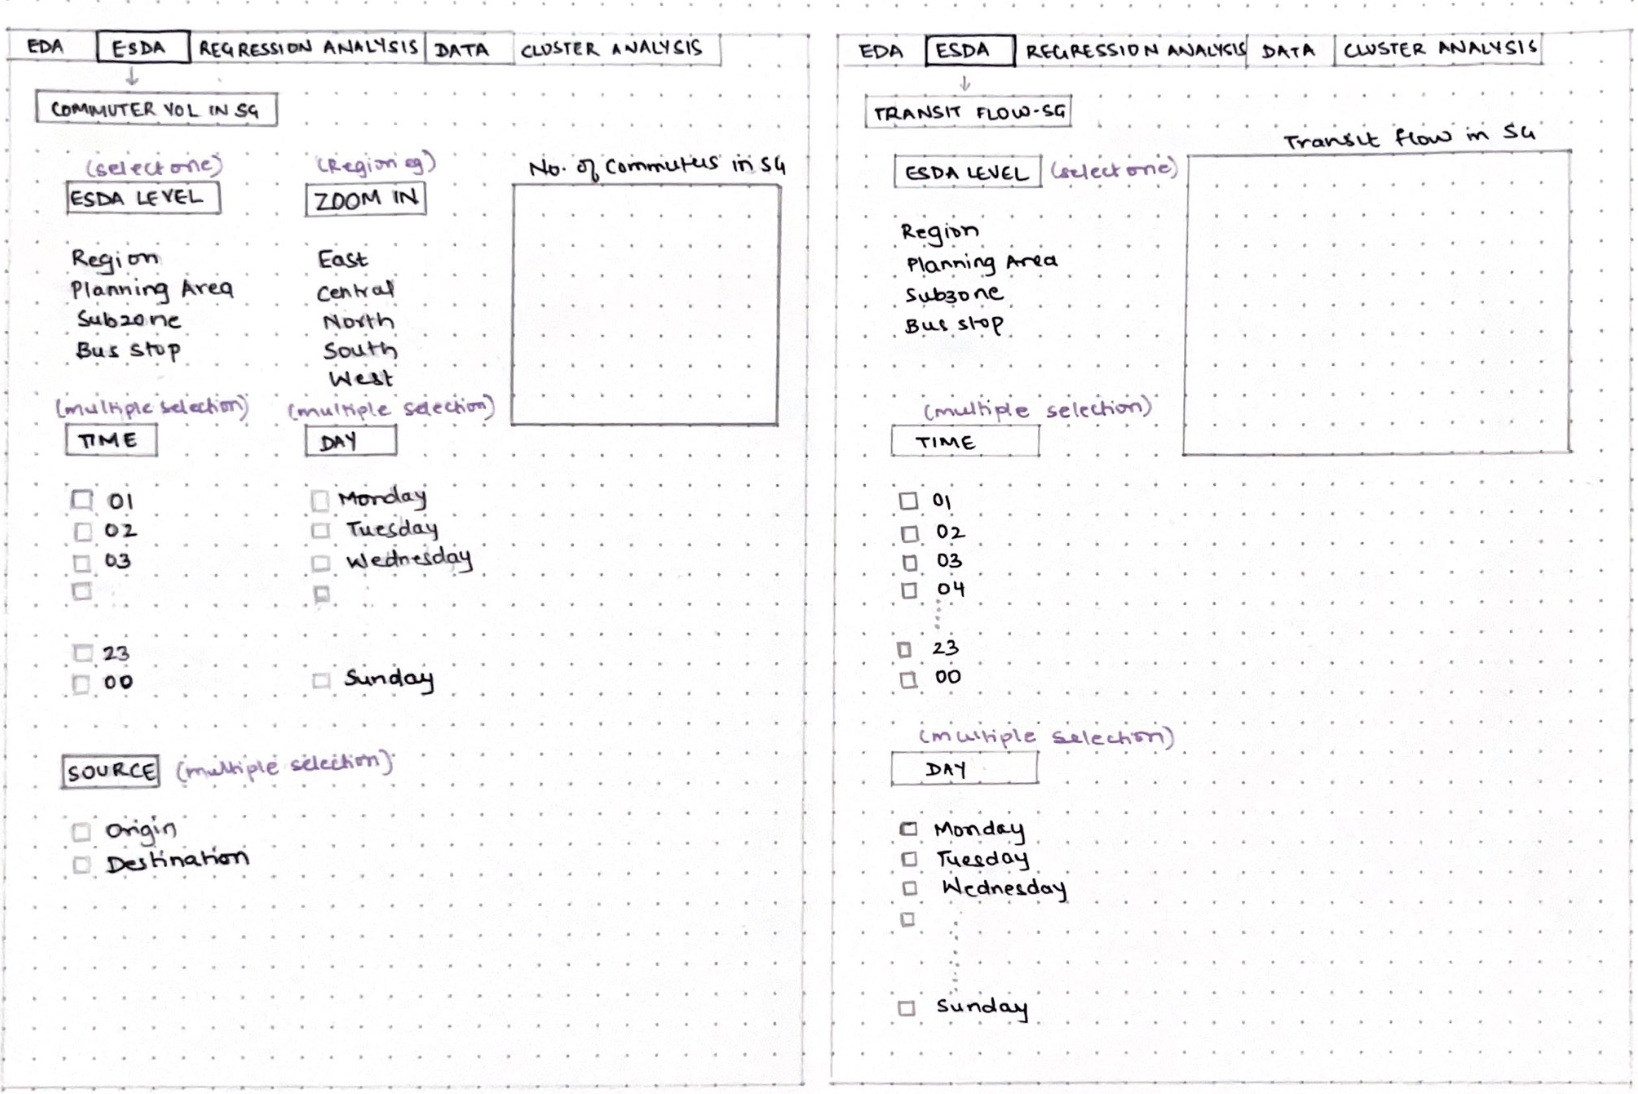 EDA ESDA REGRESSION ANALYSIS DATA CLUSTER ANALYSIS
COMMUTER VOL IN SG
(select one) (Region eg) No. of Commuters in SG
ESDA LEVEL ZOOM IN
Region East
Planning Area Central
Subzone North
Bus stop South
West
(multiple selection) (multiple selection)
TIME DAY
01 Monday
02 Tuesday
03 Wednesday
23
00 Sunday
SOURCE (multiple selection)
Origin
Destination
EDA ESDA REGRESSION ANALYSIS DATA CLUSTER ANALYSIS
TRANSIT FLOW-SG
Transit flow in SG
ESDA LEVEL (select one)
Region
Planning Area
Subzone
Bus stop
(multiple selection)
TIME
01
02
03
04
23
00
(multiple selection)
DAY
Monday
Tuesday
Wednesday
Sunday